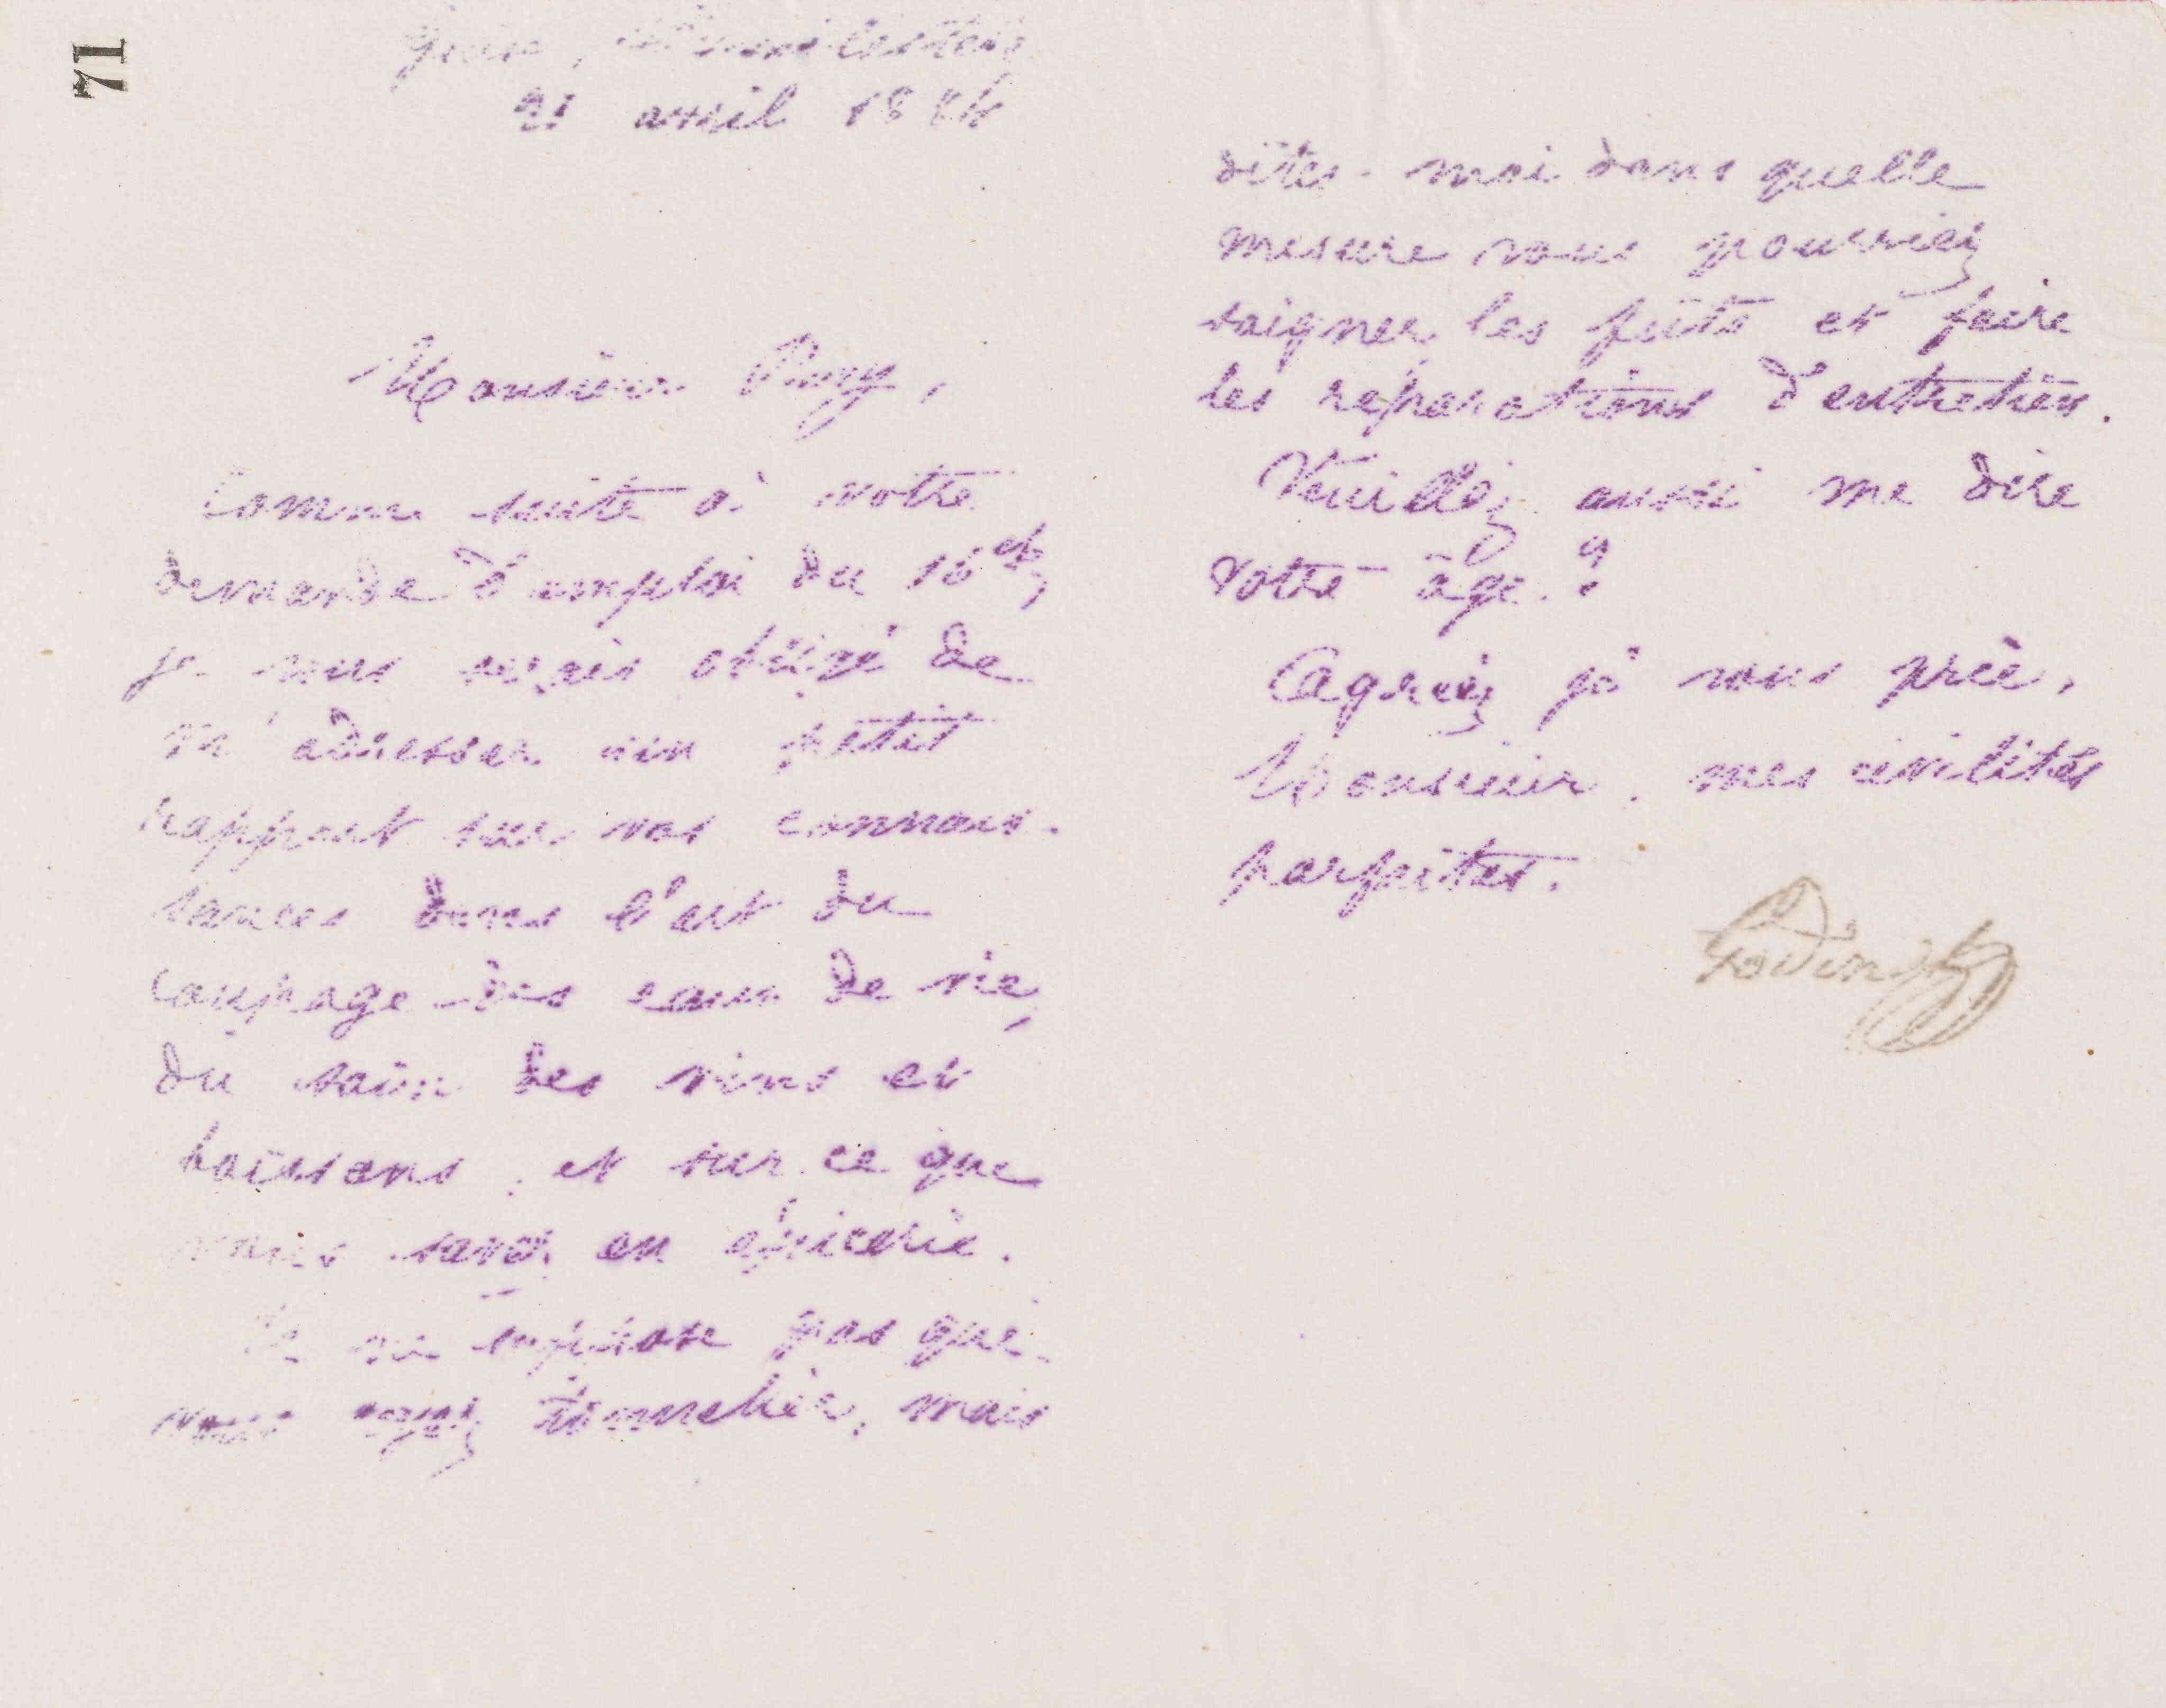 71
Guise, Familistère
21 avril 1884
Monsieur Pury,
Comme suite à votre
demande d'emploi du 16 ct,
je vous serais obligé de
m'adresser un petit
rapport sur vos connais-
sances dans l'art du
coupage des eaux de vie,
du soin des vins et
boissons, et sur ce que
vous savez en épicerie.
Je ne suppose pas que
vous soyez tonnelier, mais
dites-moi dans quelle
mesure vous pourriez
soigner les fûts et faire
les réparations d'entretien.
Veuillez aussi me dire
votre âge ?
Agréez je vous prie,
Monsieur, mes civilités
parfaites.
Godin